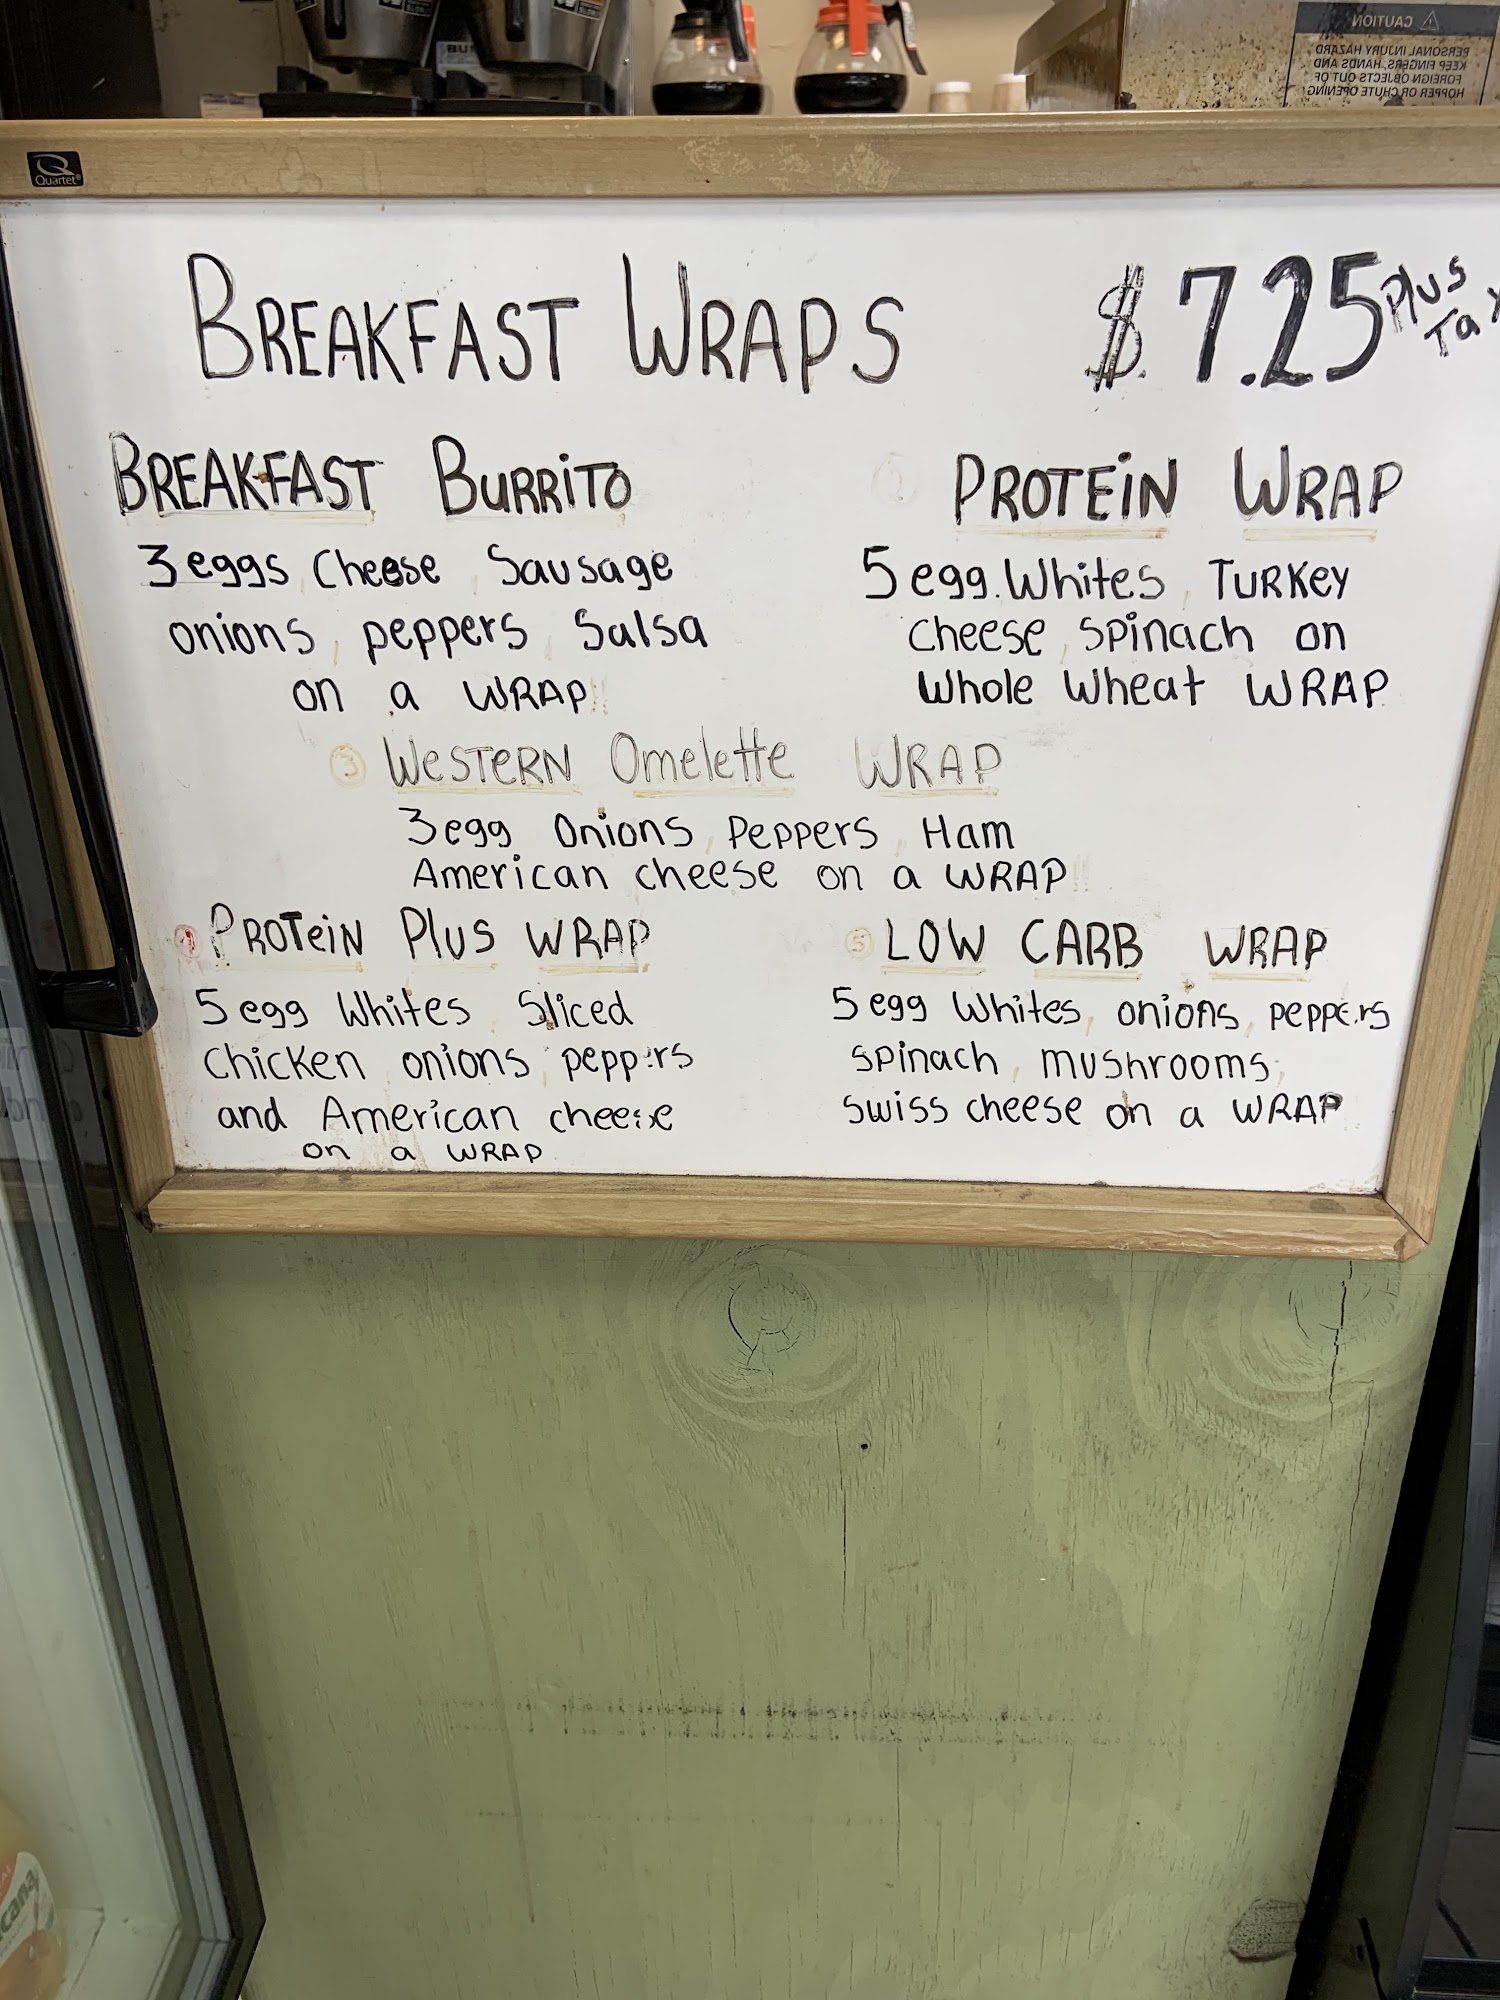 CAUTION
PERSONAL INJURY HAZARD
KEEP FINGERS, HANDS AND
FOREIGN OBJECTS OUT OF
HOPPER OR CHUTE OPENING
BU
Quartet
BREAKFAST WRAPS $7.25 Plus Tax
BREAKFAST BURRITO
3 eggs, Cheese, Sausage
onions, peppers, Salsa
on a WRAP!!
PROTEiN WRAP
5 egg Whites, TURKEY
cheese, spinach on
Whole Wheat WRAP
3 WeSTERN Omelette WRAP
3 egg Onions, Peppers, Ham
American cheese on a WRAP!!
PROTeiN Plus WRAP
5 egg Whites, Sliced
Chicken onions, peppers
and American cheese
on a WRAP
5 LOW CARB WRAP
5 egg Whites, onions, peppers
spinach, mushrooms,
swiss cheese on a WRAP